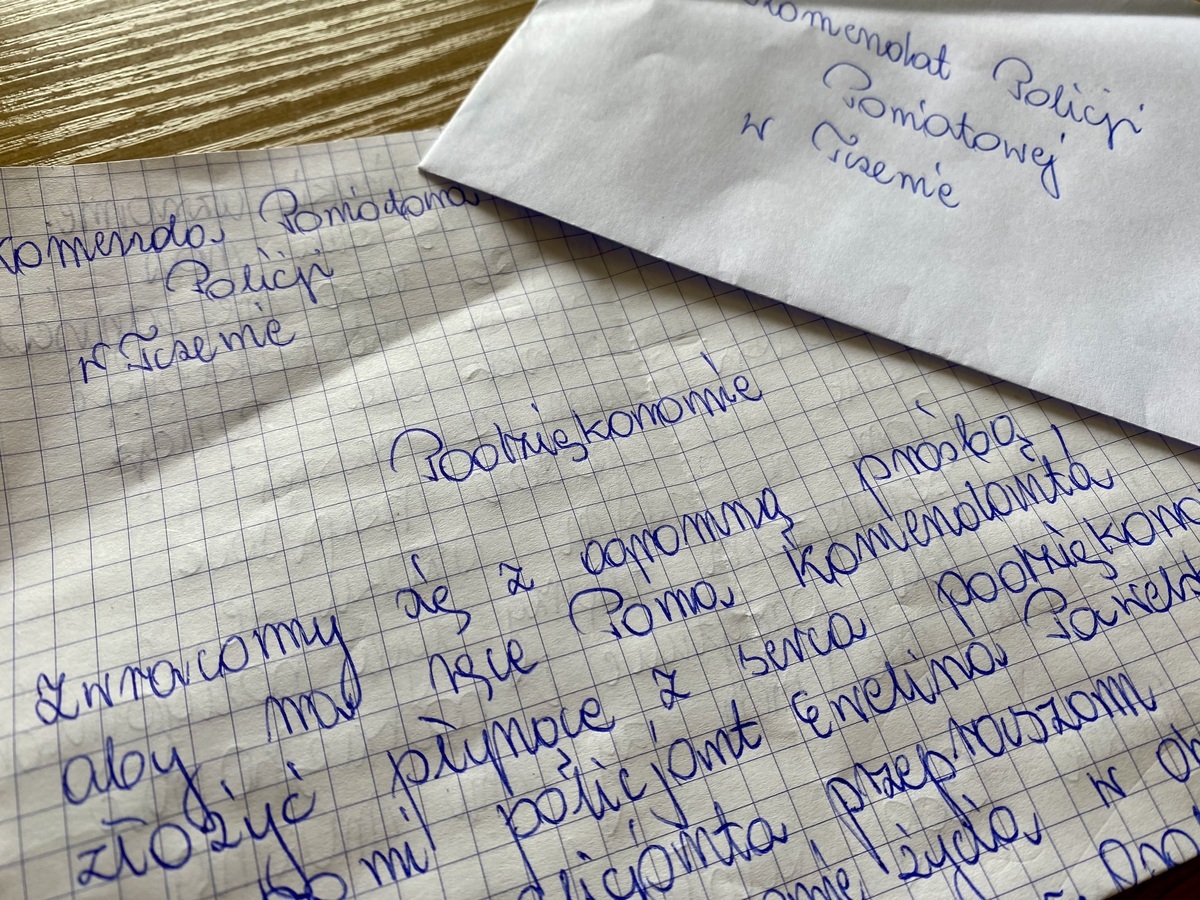 Komendat Policji
Powiatowej
w Tczewie
Komenda Powiatowa
Policji
w Tczewie
Podziękowanie
Zwracamy się z ogromną prośbą,
aby na ręce Pana komendanta
złożyć płynące z serca podziękowa
policjant Ewelina
przepraszam
życia w